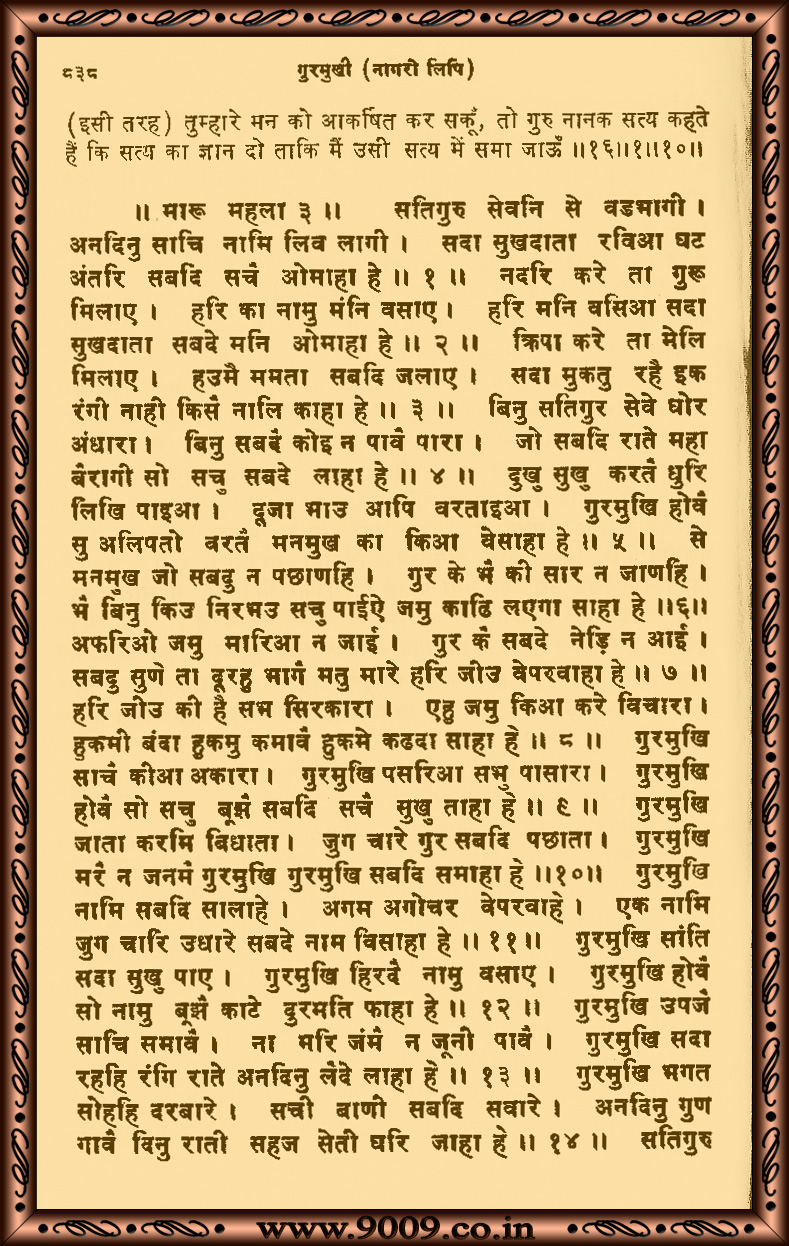 ८३८ गुरमुखी (नागरी लिपि)
(इसी तरह) तुम्हारे मन को आकर्षित कर सकूँ, तो गुरु नानक सत्य कहते
हैं कि सत्य का ज्ञान दो ताकि मैं उसी सत्य में समा जाऊँ ॥१६॥१॥१०॥
॥ मारू महला ३ ॥ सतिगुरु सेवनि से वडभागी ।
अनदिनु साचि नामि लिव लागी । सदा सुखदाता रविआ घट
अंतरि सबदि सचै ओमाहा हे ॥ १ ॥ नदरि करे ता गुरू
मिलाए । हरि का नामु मंनि वसाए । हरि मनि वसिआ सदा
सुखदाता सबदे मनि ओमाहा हे ॥ २ ॥ क्रिपा करे ता मेलि
मिलाए । हउमै ममता सबदि जलाए । सदा मुकतु रहै इक
रंगी नाही किसै नालि काहा हे ॥ ३ ॥ बिनु सतिगुर सेवे घोर
अंधारा । बिनु सबदै कोइ न पावै पारा । जो सबदि राते महा
बैरागी सो सचु सबदे लाहा हे ॥ ४ ॥ दुखु सुखु करतै धुरि
लिखि पाइआ । दूजा भाउ आपि वरताइआ । गुरमुखि होवै
सु अलिपतो वरतै मनमुख का किआ वेसाहा हे ॥ ५ ॥ से
मनमुख जो सबदु न पछाणहि । गुर के भै की सार न जाणहि ।
भै बिनु किउ निरभउ सचु पाईऐ जमु काढि लएगा साहा हे ॥६॥
अफरिओ जमु मारिआ न जाई । गुर कै सबदे नेड़ि न आई ।
सबदु सुणे ता दूरहु भागै मतु मारे हरि जीउ वेपरवाहा हे ॥ ७ ॥
हरि जीउ की है सभ सिरकारा । एहु जमु किआ करे विचारा ।
हुकमी बंदा हुकमु कमावै हुकमे कढदा साहा हे ॥ ८ ॥ गुरमुखि
साचै कीआ अकारा । गुरमुखि पसरिआ सभु पासारा । गुरमुखि
होवै सो सचु बूझै सबदि सचै सुखु ताहा हे ॥ ९ ॥ गुरमुखि
जाता करमि बिधाता । जुग चारे गुर सबदि पछाता । गुरमुखि
मरै न जनमै गुरमुखि गुरमुखि सबदि समाहा हे ॥१०॥ गुरमुखि
नामि सबदि सालाहे । अगम अगोचर वेपरवाहे । एक नामि
जुग चारि उधारे सबदे नाम विसाहा हे ॥ ११॥ गुरमुखि सांति
सदा सुखु पाए । गुरमुखि हिरदै नामु वसाए । गुरमुखि होवै
सो नामु बूझै काटे दुरमति फाहा हे ॥ १२ ॥ गुरमुखि उपजै
साचि समावै । ना मरि जंमै न जूनी पावै । गुरमुखि सदा
रहहि रंगि राते अनदिनु लैदे लाहा हे ॥ १३ ॥ गुरमुखि भगत
सोहहि दरबारे । सची बाणी सबदि सवारे । अनदिनु गुण
गावै दिनु राती सहज सेती घरि जाहा हे ॥ १४ ॥ सतिगुरु
www.9009.co.in